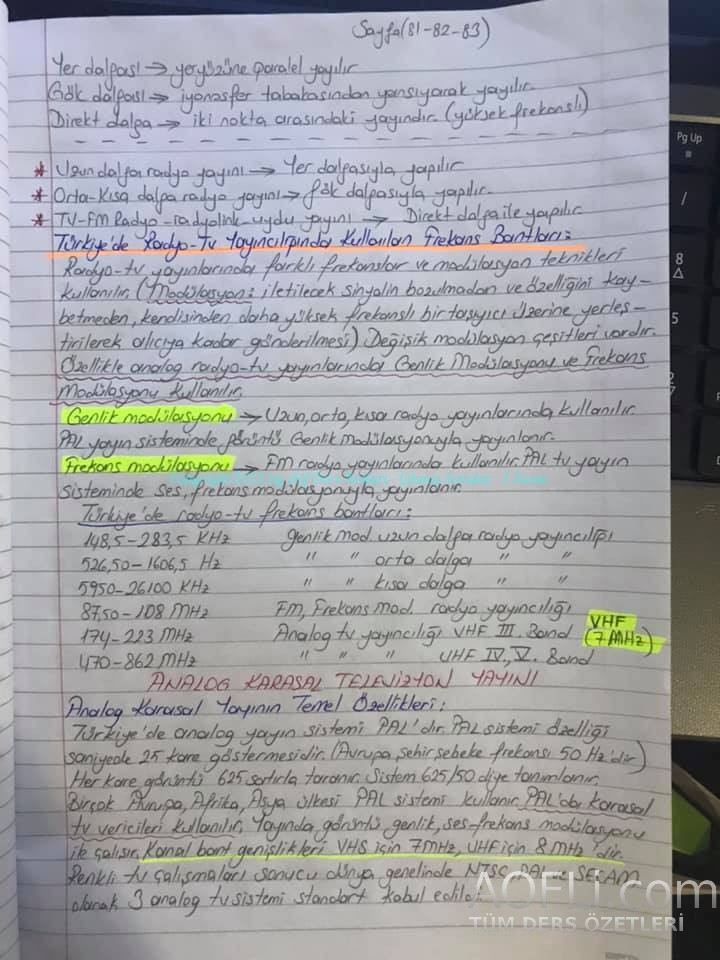 Sayfa(81-82-83)
Yer dalgası → yeryüzüne paralel yayılır
Gök dalgası → iyonosfer tabakasından yansıyarak yayılır.
Direkt dalga → iki nokta arasındaki yayındır. (yüksek frekanslı)
* Uzun dalga radyo yayını → Yer dalgasıyla yapılır
* Orta-Kısa dalga radyo yayını → gök dalgasıyla yapılır.
* TV-FM Radyo-radyolink-uydu yayını → Direkt dalga ile yapılır.
Türkiye'de Radyo-Tv Yayıncılığında Kullanılan Frekans Bantları:
Radyo-tv yayınlarında farklı frekanslar ve modülasyon teknikleri
kullanılır. (Modülasyon: iletilecek sinyalin bozulmadan ve özelliğini kay-
betmeden, kendisinden daha yüksek frekanslı bir taşıyıcı üzerine yerleş-
tirilerek alıcıya kadar gönderilmesi) Değişik modülasyon çeşitleri vardır.
Özellikle analog radyo-tv yayınlarında Genlik Modülasyonu ve Frekans
Modülasyonu kullanılır.
Genlik modülasyonu → Uzun, orta, kısa radyo yayınlarında kullanılır.
PAL yayın sisteminde görüntü Genlik modülasyonuyla yayınlanır.
Frekans modülasyonu → FM radyo yayınlarında kullanılır. PAL tv yayın
sisteminde ses, frekans modülasyonuyla yayınlanır.
Türkiye'de radyo-tv frekans bantları:
148,5-283,5 KHz Genlik mod. uzun dalga radyo yayıncılığı
526,50-1606,5 Hz " " orta dalga " "
5950-26100 KHz " " kısa dalga " "
87,50-108 MHz FM, Frekans mod. radyo yayıncılığı
174-223 MHz Analog tv yayıncılığı VHF III. Band VHF (7MHz)
470-862 MHz " " " UHF IV., V. Band
ANALOG KARASAL TELEVİZYON YAYINI
Analog Karasal Yayının Temel Özellikleri:
Türkiye'de analog yayın sistemi PAL'dır. PAL sistemi özelliği
saniyede 25 kare göstermesidir. (Avrupa, şehir şebeke frekansı 50 Hz'dir)
Her kare görüntü 625 satırla taranır. Sistem 625/50 diye tanımlanır.
Birçok Avrupa, Afrika, Asya ülkesi PAL sistemi kullanır. PAL'da karasal
tv vericileri kullanılır. Yayında görüntü genlik, ses-frekans modülasyonu
ile çalışır. Kanal bant genişlikleri VHS için 7MHz, UHF için 8 MHz'dir.
Renkli tv çalışmaları sonucu dünya genelinde NTSC, PAL ve SECAM
olarak 3 analog tv sistemi standart kabul edildi.
AOFLI.com
TÜM DERS ÖZETLERİ
Pg Up
/
8
5
2
7